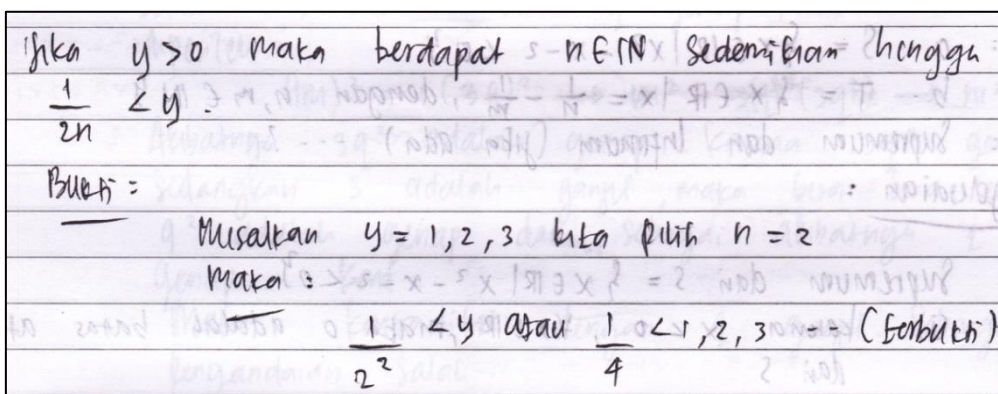 Jika y > 0 maka berdapat n ∈ IN sedemikian hengga
1/2n < y.
Bukti =
Misalkan y = 1, 2, 3 kita pilih n = 2
Maka :
1/2² < y atau 1/4 < 1, 2, 3 -- (terbukti)